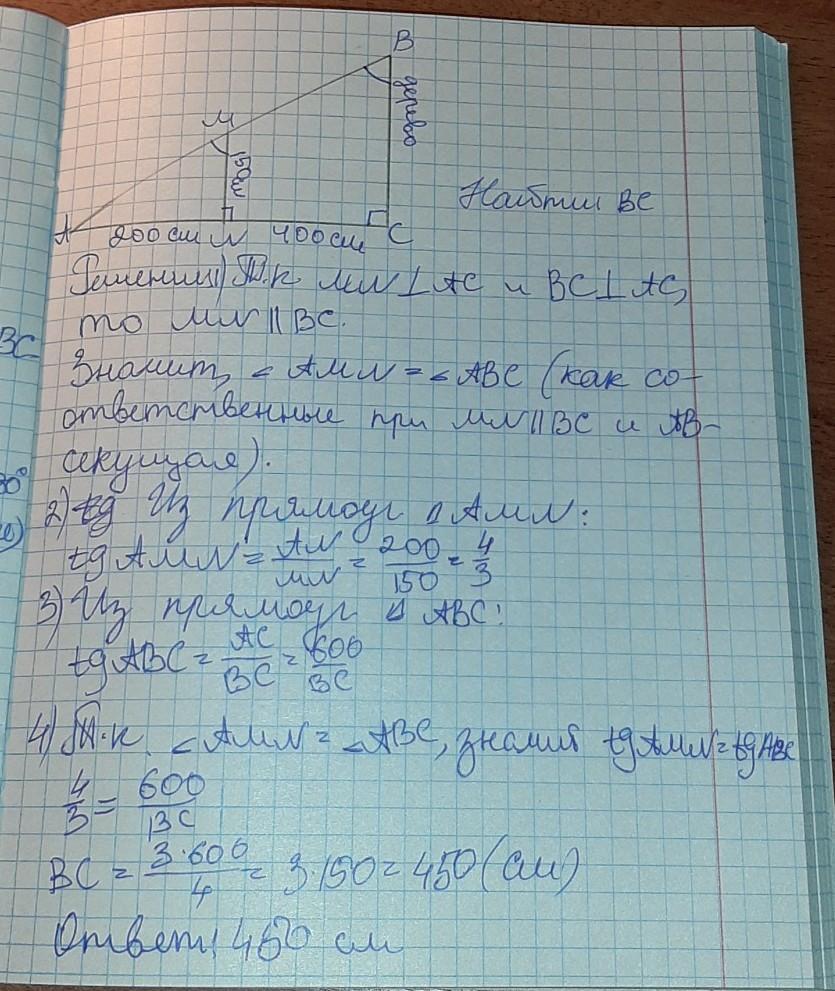 B
дерево
M
150см
Найти BC
A 200 см N 400 см C
Решение 1) Т.к MN⊥AC и BC⊥AC,
то MN||BC.
BC
Значит, ∠AMN=∠ABC (как со-
ответственные при MN||BC и AB-
секущая).
2) Из прямоуг △AMN:
tg AMN = AN/MN = 200/150 = 4/3
3) Из прямоуг △ABC:
tg ABC = AC/BC = 600/BC
4) Т.к. ∠AMN=∠ABC, значит tgAMN=tgABC
4/3 = 600/BC
BC = 3·600/4 = 3·150=450(см)
Ответ: 450 см